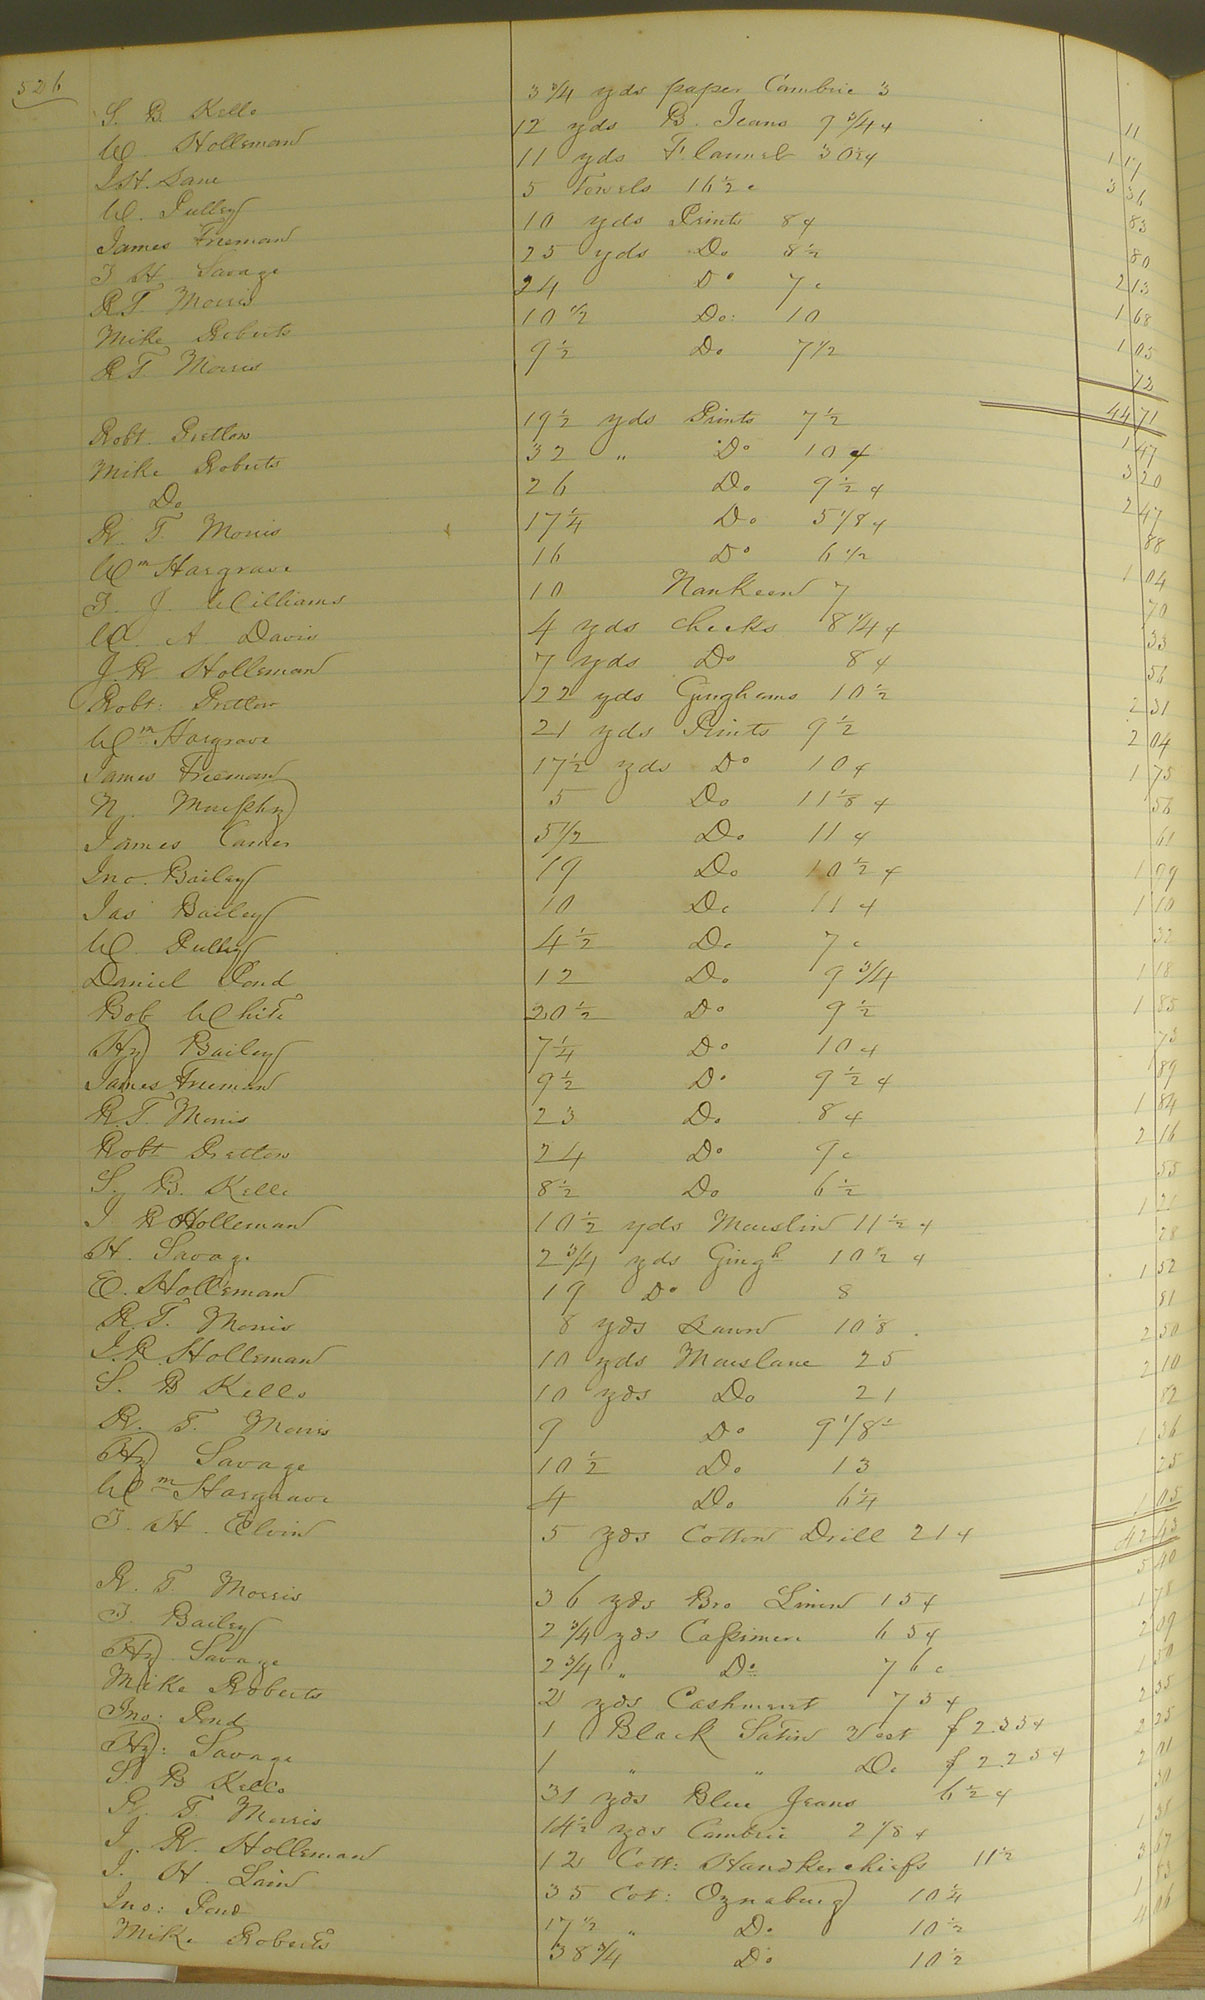 526
S. B. Kello 3 3/4 yds paper Cambric 3 11
W. Holleman 12 yds B. Jeans 9 3/4 ¢ 1 17
J. H. Lane 11 yds Flannel 30½¢ 3 36
W. Pulley 5 Towels 16½ c 83
James Freeman 10 yds Prints 8¢ 80
T H Savage 25 yds Do 8½ 2 13
R T. Morris 24 Do 7 c 1 68
Mike Roberts 10 ½ Do: 10 1 05
R T. Morris 9½ Do 7 1/2 72
44 71
Robt. Pretlow 19½ yds Prints 7½ 1 47
Mike Roberts 32 " Do 10 ¢ 3 20
Do 26 Do 9½ ¢ 2 47
R. T. Morris 17¼ Do 5 1/8 ¢ 88
Wm Hargrave 16 Do 6 1/2 1 04
T. J. Williams 10 Nankeen 7 70
W A Davis 4 yds checks 8 1/4 ¢ 33
J. R Holleman 7 yds Do 8 ¢ 56
Robt: Pretlow 22 yds Ginghams 10½ 2 31
Wm Hargrave 21 yds Prints 9½ 2 04
James Freeman 17½ yds Do 10 ¢ 1 75
N. Murphy 5 Do 11 1/8 ¢ 56
James 5 1/2 Do 11 ¢ 61
Jno. Bailey 19 Do 10½ ¢ 1 99
Jas Bailey 10 Do 11 ¢ 1 10
W Pulley 4½ Do 7 c 32
Daniel Pond 12 Do 9 3/4 1 18
Bob White 20½ Do 9½ 1 85
Hy Bailey 7¼ Do 10 ¢ 73
James Freeman 9½ Do 9½ ¢ 89
R. T. Morris 23 Do 8 ¢ 1 84
Robt Pretlow 24 Do 9 c 2 16
S. B. Kello 8½ Do 6½ 55
J R Holleman 10½ yds Muslin 11½ ¢ 1 21
H. Savage 2 3/4 yds Gingh 10½ ¢ 28
E. Holleman 19 Do 8 1 52
R. T. Morris 8 yds Lawn 10 1/8 81
J. R. Holleman 10 yds Muslane 25 2 50
S. B Kello 10 yds Do 21 2 10
R. T. Morris 9 Do 9 1/8 82
Hy Savage 10½ Do 13 1 36
Wm Hargrave 4 Do 6¼ 25
T. H. Elvin 5 yds Cotton Drill 21 ¢ 1 05
R. T. Morris 36 yds Bro Linen 15 ¢ 5 40
T. Bailey 2 3/4 yds Cassimere 65 ¢ 1 78
Hy. Savage 2 3/4 " Do 76 c 2 09
Mike Roberts 2 yds Cashmeret 75 ¢ 1 50
Jno: Pond 1 Black Satin Vest $ 2.35 ¢ 2 35
Hy: Savage 1 " " Do $ 2.25 ¢ 2 25
S. B Kello 31 yds Blue Jeans 6½ ¢ 2 01
R. T. Morris 14½ yds Cambric 2 1/8 ¢ 30
J. R. Holleman 12 Cott: Handkerchiefs 11½ 1 38
J. H. Lain 35 Cot: Oznaburg 10½ 3 67
Jno: Pond 17 ½ " Do 10½ 1 83
Mike Roberts 38 3/4 Do 10½ 4 06